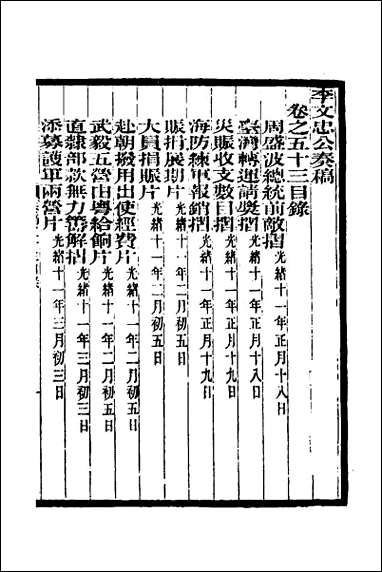 李文忠公奏稿
卷之五十三目錄
周盛波總統前敵摺 光緒十一年正月十八日
臺灣轉運請獎摺 光緒十一年正月十八日
災賑收支數目摺 光緒十一年正月十九日
海防練軍報銷摺 光緒十一年正月十九日
賑捐展期片 光緒十一年二月初五日
大員捐賑片 光緒十一年二月初五日
赴朝撥用出使經費片 光緒十一年二月初五日
武毅五營由粵給餉片 光緒十一年二月初五日
直隸部款無力籌解摺 光緒十一年三月初三日
添募護軍兩營片 光緒十一年三月初三日